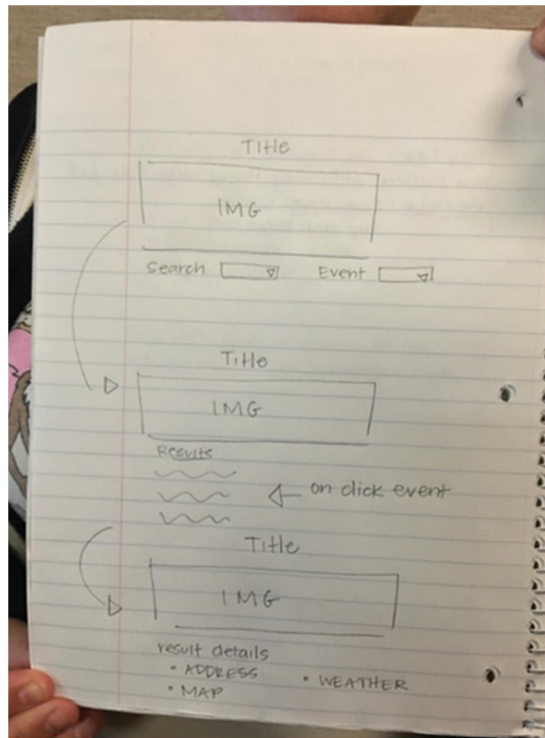 Title
IMG
Search Event
Title
IMG
Results
on click event
Title
IMG
result details
• ADDRESS
• WEATHER
• MAP